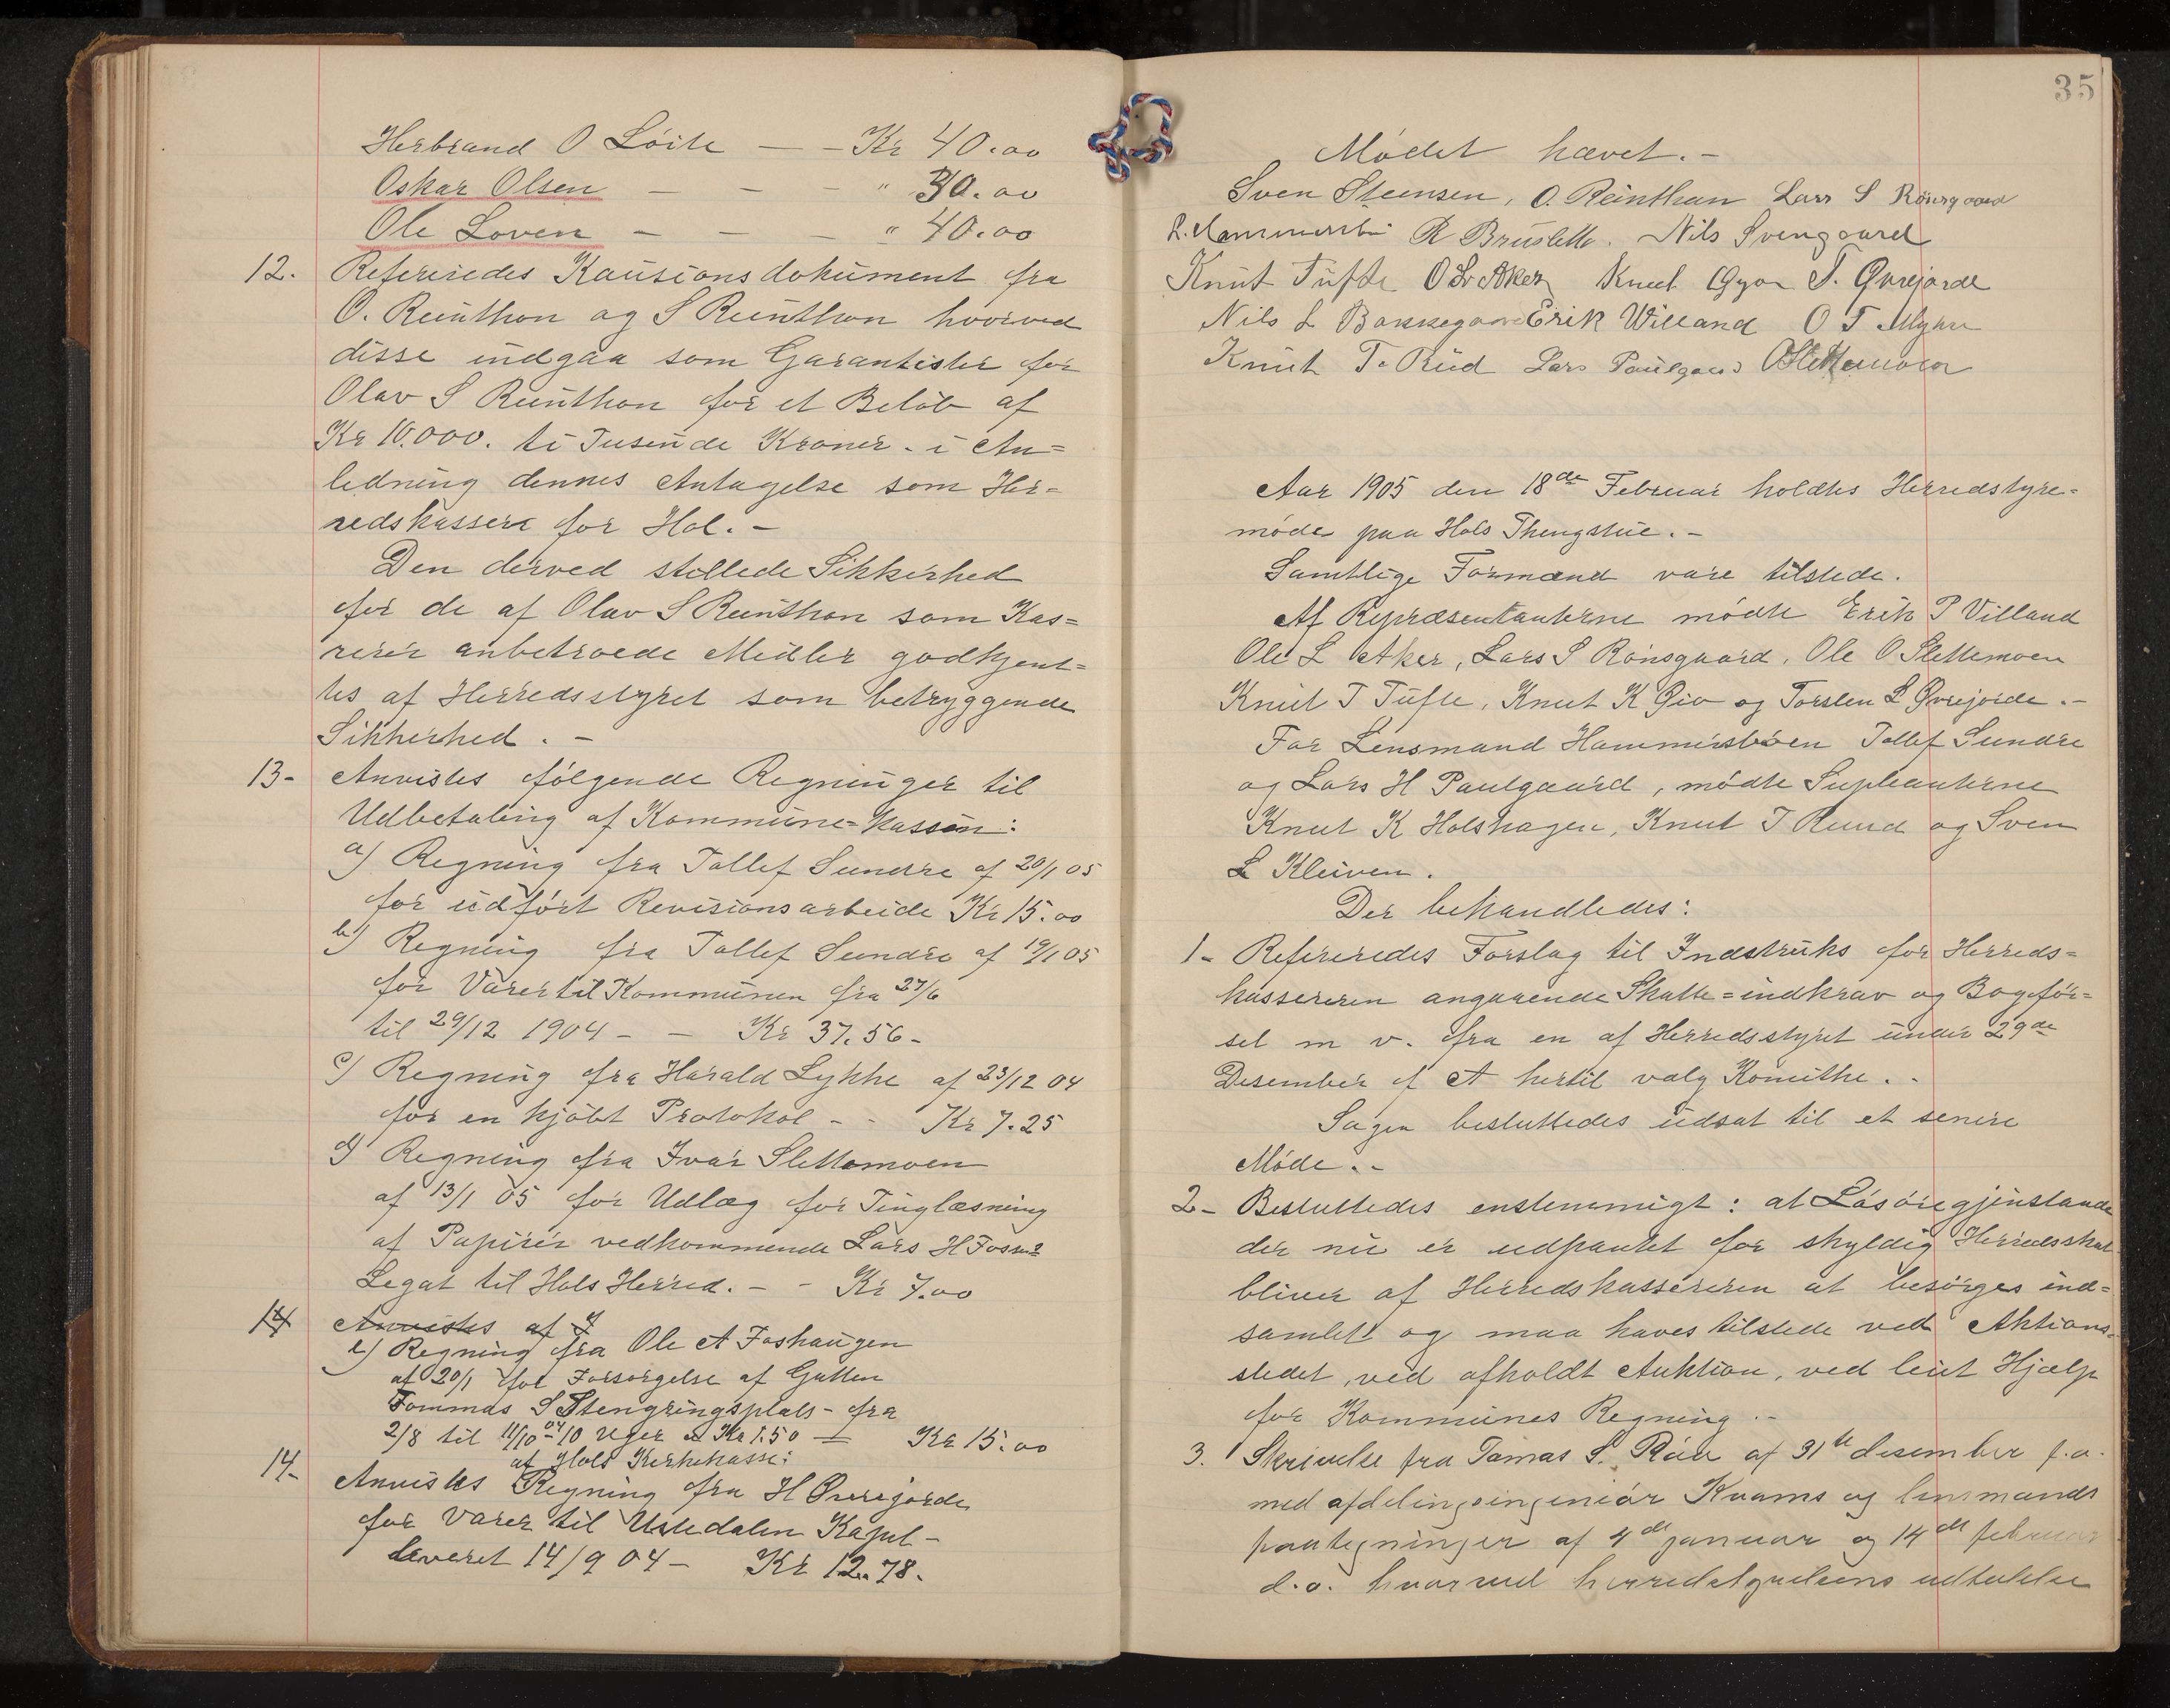 Herbrand O Löite — — Kr 40.00
Oskar Olsen — — — " 30.00
Ole Loven — — — " 40.00
12. Refereredes Kautionsdokument fra
O. Reinthon og S Reinthon hvorved
disse indgaa som Garantister for
Olav S Reinthon for et Beløb af
Kr 10.000. ti Tusinde Kroner - i An=
ledning dennes Antagelse som Her=
redskasserer for Hol. -
Den derved stillede Sikkerhed
for de af Olav S Reinthon som Kas=
rerer anbetroede Midler godkjent=
tes af Herredsstyret som betryggende
Sikkerhed. -
13- Anvistes følgende Regninger til
Udbetaling af Kommune=kassen:
a) Regning fra Tollef Sundre af 20/1 05
for udført Revisionsarbeide Kr 15.00
b) Regning fra Tollef Sundre af 19/1 05
for Varer til Kommunen fra 27/6
til 29/12 1904 - - Kr 37.56-
c) Regning fra Harald Lykke af 23/12 04
for en kjøbt Protokol - - Kr 7.25
d) Regning fra Ivar Slettemoen
af 13/1 05 for Udlæg for Tinglæsning
af Papirer vedkommende Lars H Fosses
Legat til Hols Herred. - - Kr 7.00
14 Anvistes af
e) Regning fra Ole A Foshaugen
af 20/1 for Forsørgelse af Gutten
Tommas S Stengringsplads - fra
2/8 til 11/10 04 - 10 Uger a Kr 1.50 — Kr 15.00
af Hols Kirkekasse:
14- Anvistes Regning fra H Øvrejorde
for Varer til Ustedalen Kapel -
leveret 14/9 04 - Kr 12.78.
35
Mødet hævet. -
Sven Steensen, O. Reinthon Lars S Rönsgaard
R Bruslette. Nils Svengaard
Knut Tufte O L Aker Knut Gjøo T. Øvrejorde
Nils L Bakkegaard Erik Willand O T Myhre
Knut T. Rud Lars Paulgaard O Slettemoen
Aar 1905 den 18de Februar holdtes Herredstyre=
møde paa Hols Thengstue. -
Samtlige Formænd vare tilstede.
Af Repræsentanterne mødte Erik P Villand
Ole L Aker, Lars S Rönsgaard, Ole O Slettemoen
Knut T Tufte, Knut K Gjø og Torsten L Øvrejorde. -
For Lensmand Hammersbøen Tollef Sundre
og Lars H Paulgaard, mødte Supleanterne
Knut K Holshagen, Knut T Ruud og Sven
L Kleiven.
Der behandledes:
1- Refereredes Forslag til Indstruks for Herreds=
kassereren angaaende Skatte=indkrav og Bogfør=
sel m v. fra en af Herredsstyret under 29de
Desember f A hertil valg Komithe. -
Sagen besluttedes udsat til et senere
Møde. -
2- Besluttedes enstemmigt: at Løsøregjenstande
der nu er udpantet for skyldig Herredsskat
bliver af Herredskassereren at besørges ind=
samlet og maa haves tilstede ved Aktions=
stedet, ved afholdt Auktion, ved leiet Hjælp
for Kommunes Regning. -
3. Skrivelse fra Tomas S. Röie af 31te desember f.a.
med afdelingsingeniør Kvams og lensmands
paategninger af 4de januar og 14de februar
d.a. hvorved herredstyrelsens udtalelse